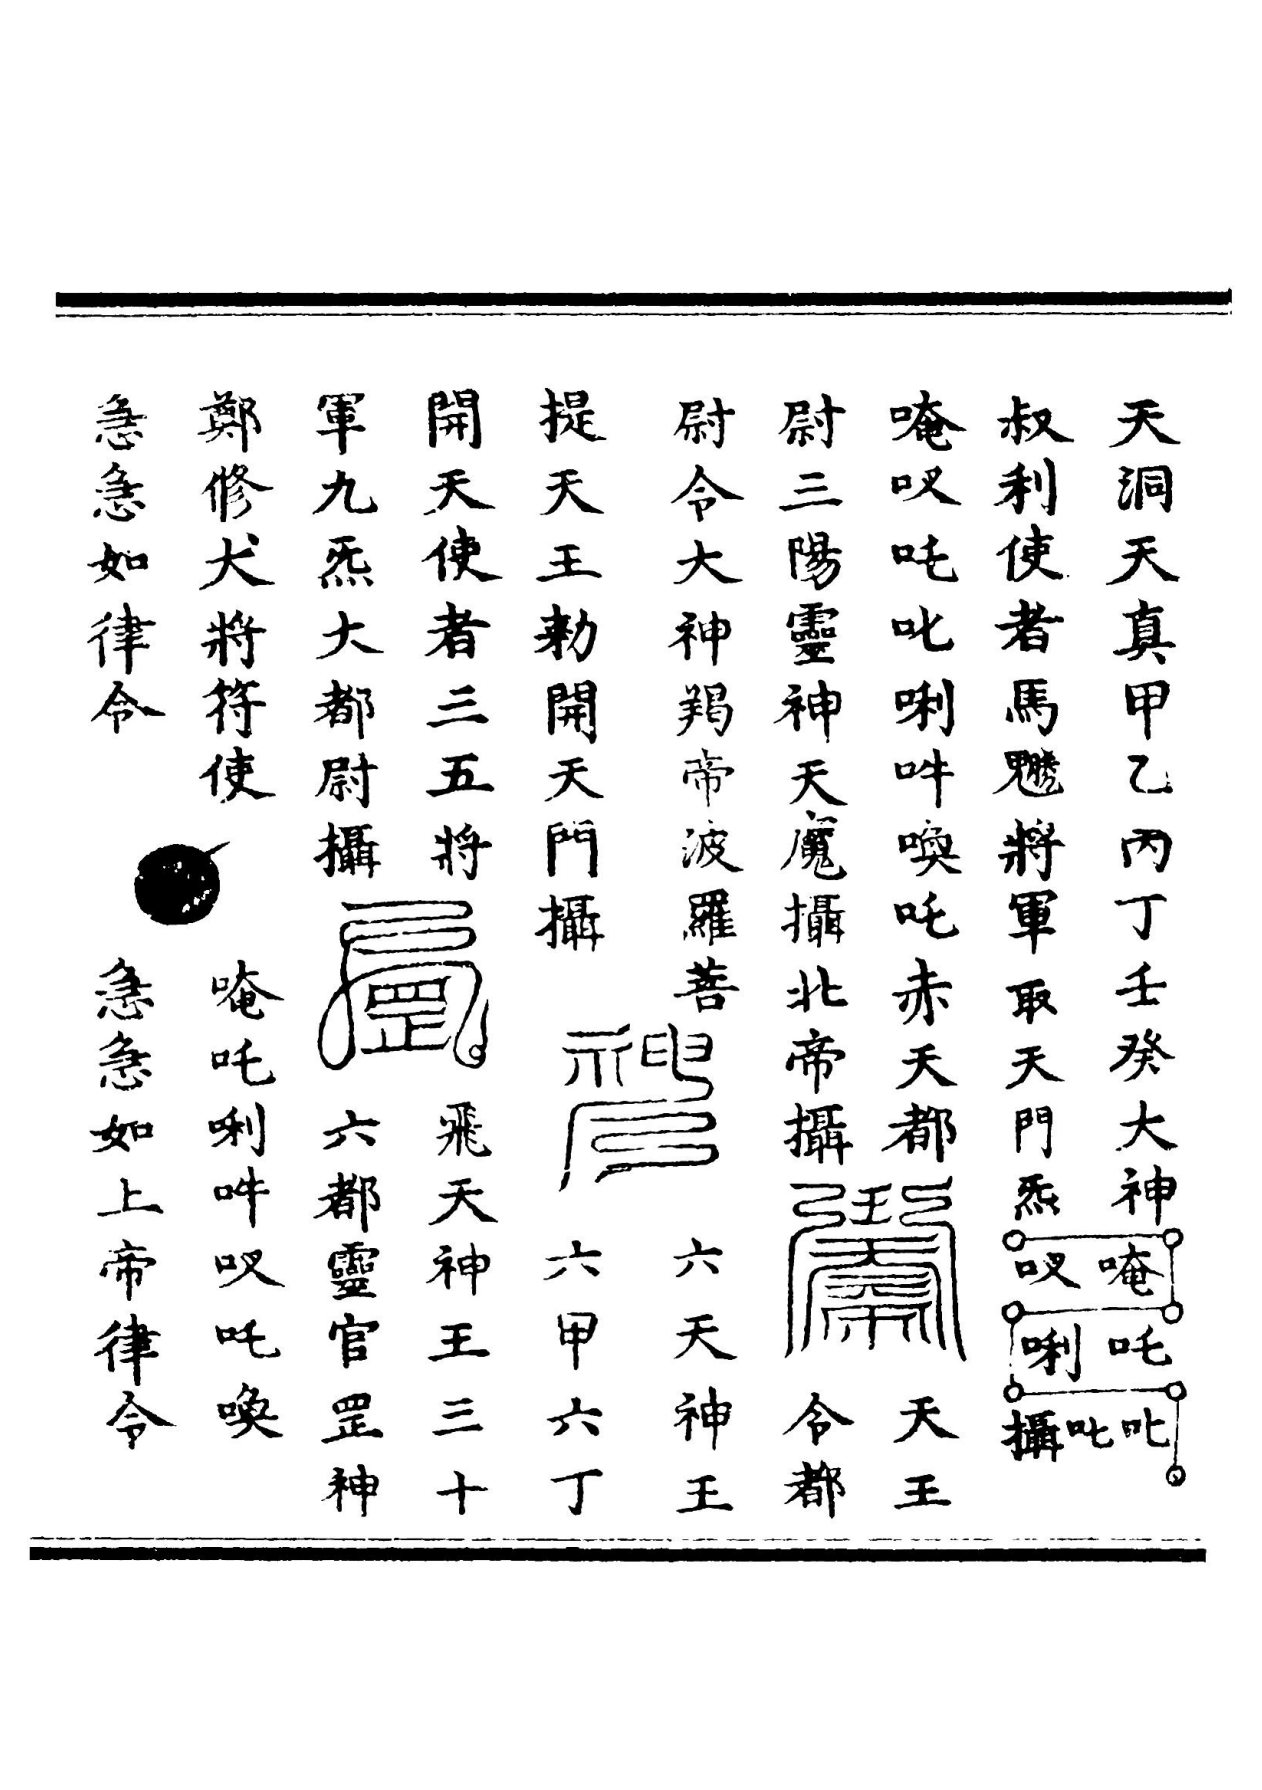 天洞天真甲乙丙丁壬癸大神
叔利使者馬將軍取天門炁
唵㕚
吒唎
叱叱攝
唵㕚吒叱唎吽喚吒赤天都 天王
尉三陽靈神天魔攝北帝攝 令都
尉令大神羯帝波羅菩 六天神王
提天王勅開天門攝 六甲六丁
開天使者三五將 飛天神王三十
軍九炁大都尉攝 六都靈官罡神
鄭修犬將符使 唵吒唎吽㕚吒喚
急急如律令 急急如上帝律令